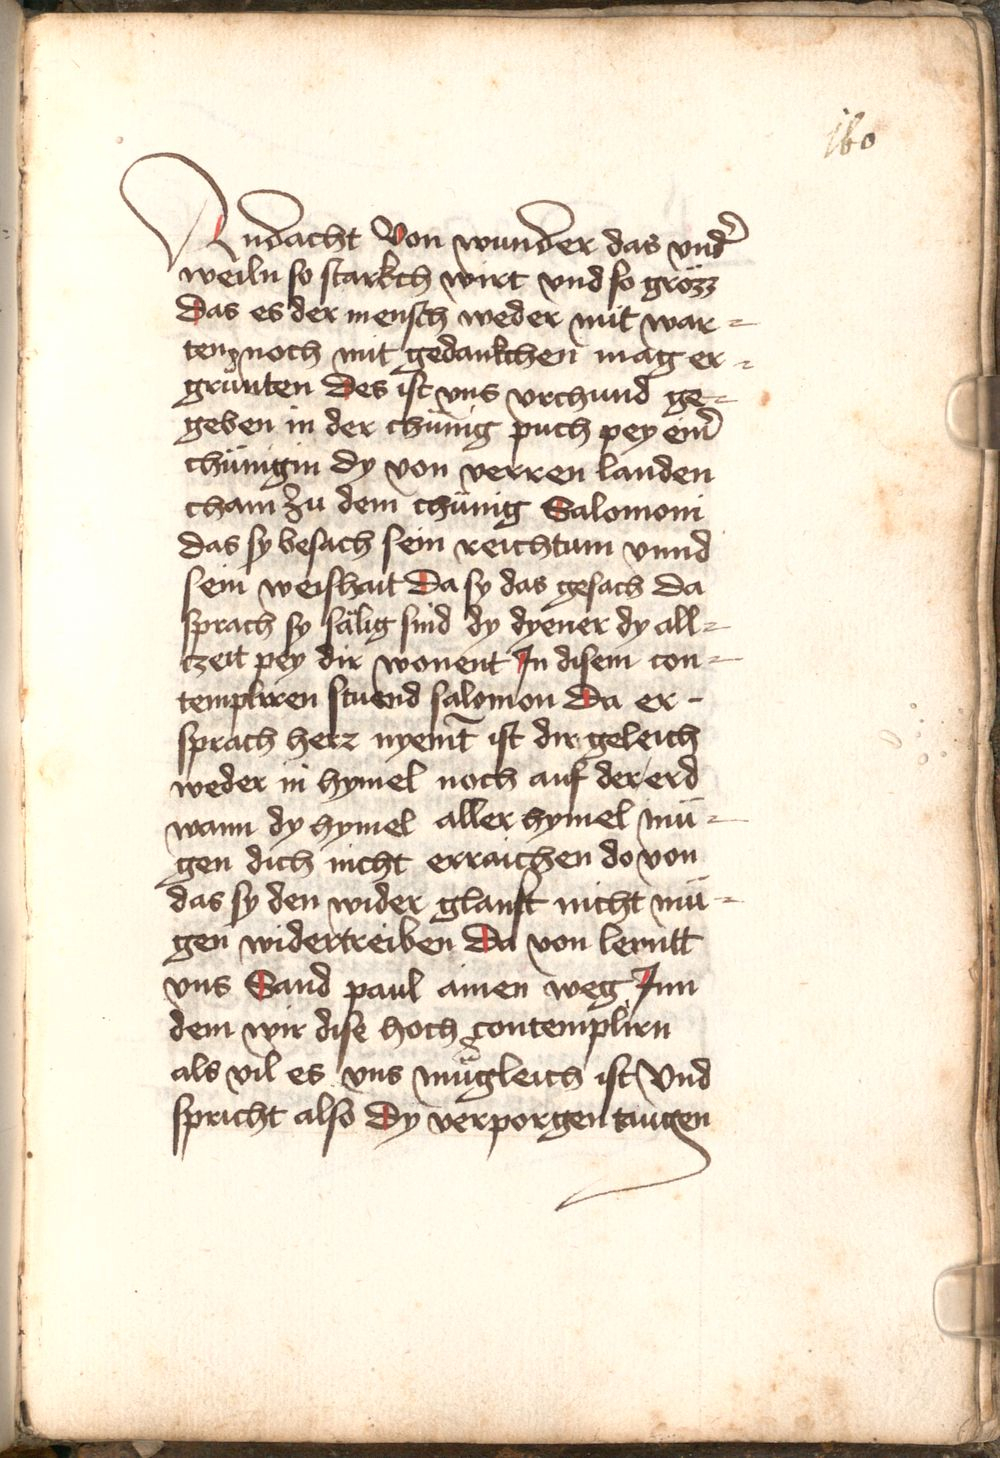 160
Andacht Von wunder das vnd͛
weiln so starkch wirt vnd so grözz
Das es der mensch weder mit war=
ten noch mit gedankchen mag er=
grünten Des ist vns vrchund ge=
geben in der chünig puch pey ein͛
chünigin dy von verren landen
cham Zu dem chünig Salomoni
das sy besach sein reichtum vnnd
sein weishait Da sy das gesach da
sprach sy sälig sind dy dyener dy all=
tzeit pey dir wonent In disem con=
templiren stuend salomon Da er-
sprach herz nyemt̄ ist dir geleich
weder in hymel noch auf der erd
wann dy hymel aller hymel mü=
gen dich nicht erraichen do von
das sy den wider glanst nicht mü=
gen widertreiben Da von lernitt
vns Sand paul ainen weg Inn
dem wir dise hoch contemplirn
als vil es vns mügleich ist Vnd
spricht also Dy verporgen taugen